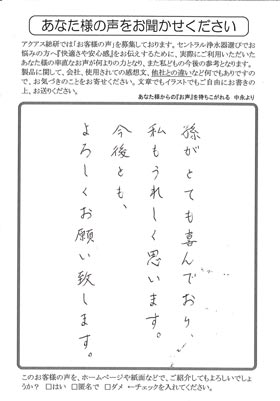 あなた様の声をお聞かせください
アクアス総研では「お客様の声」を募集しております。セントラル浄水器選びでお
悩みの方へ『快適さや安心感』をお伝えするために、実際にご利用いただいた
あなた様の率直なお声が何よりの力となり、また私どもの今後の参考となります。
製品に関して、会社、使用されての感想文、他社との違いなど何でもありですの
で、お気づきのことをお寄せください。文章でもイラストでもご自由にお書きの
上、お送りください。
あなた様からの『お声』を待ちこがれる 中永より
孫がとても喜んでおり、
私もうれしく思います。
今後とも、
よろしくお願い致します。
このお客様の声を、ホームページや紙面などで、ご紹介してもよろしいでしょ
うか? □はい □匿名で □ダメ ←チェックを入れてください。